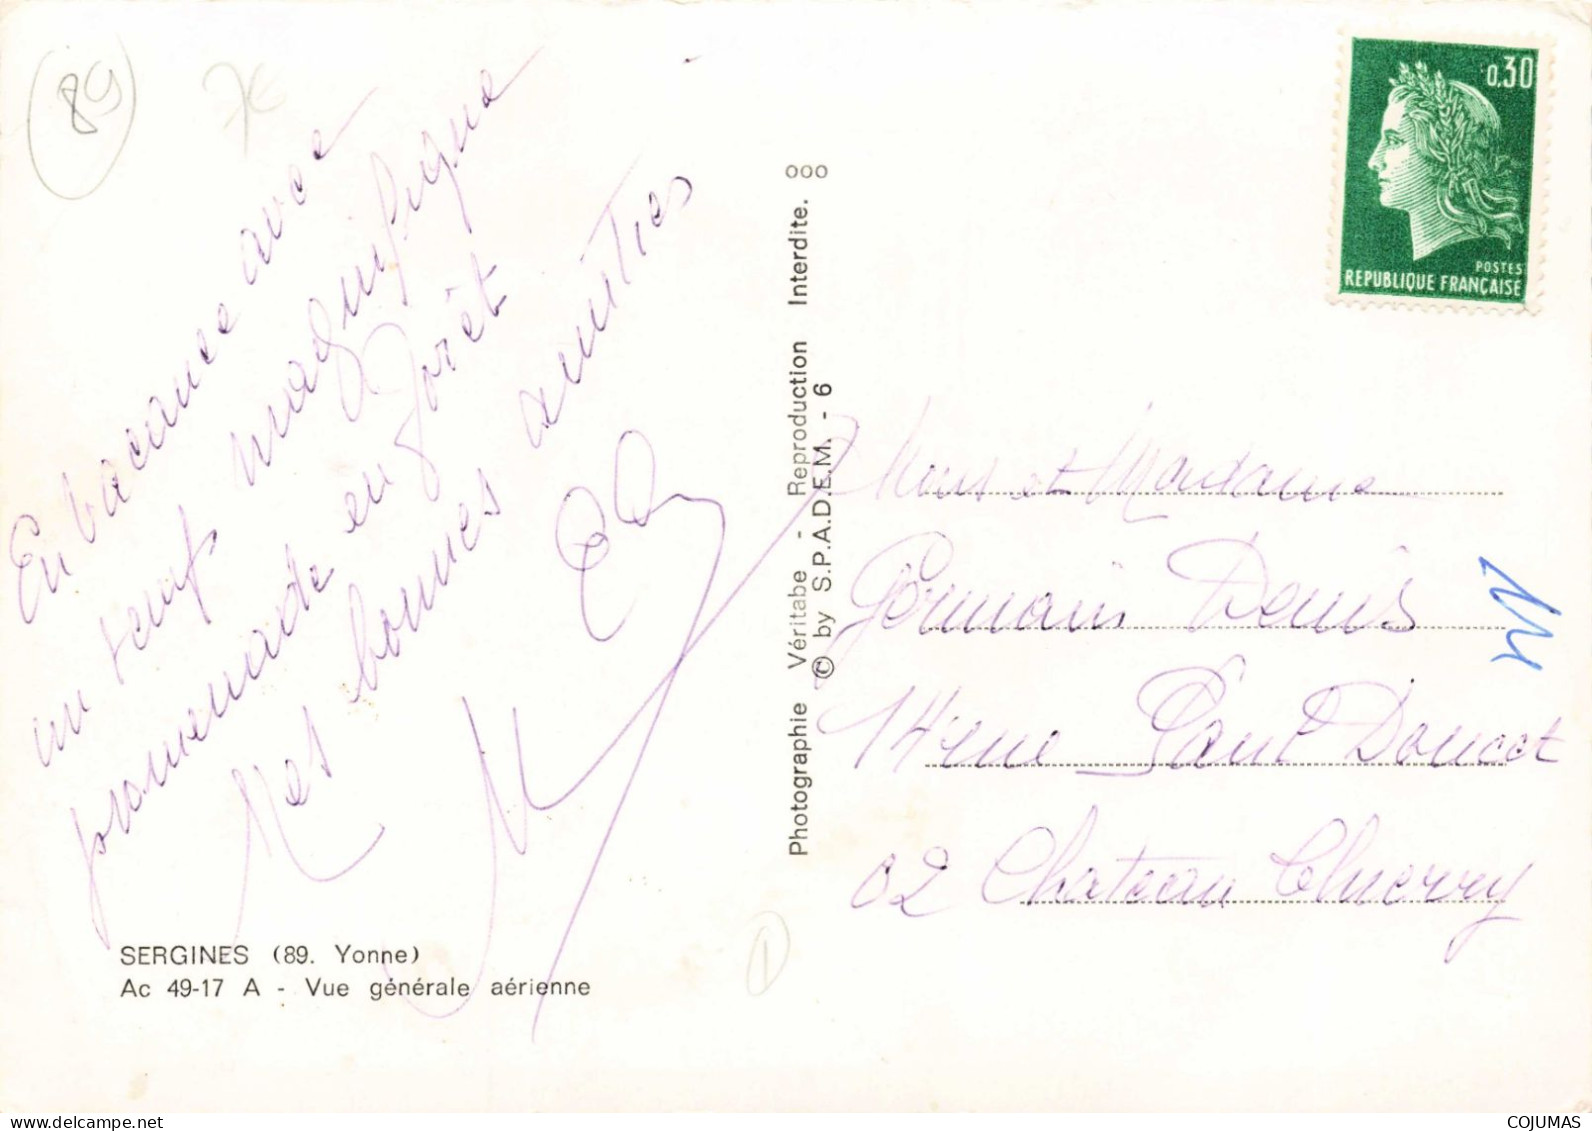 89
7€
En vacances avec
un temps magnifique
promenade en forêt
Mes bonnes amitiés
SERGINES (89. Yonne)
Ac 49-17 A - Vue générale aérienne
Photographie Véritabe - Reproduction Interdite. ooo
© by S.P.A.D.E.M. - 6
0.30
POSTES
REPUBLIQUE FRANÇAISE
Mons et Madame
Germain Denis
14 rue Paul Doucet
02 Chateau Thierry
1
COJUMAS